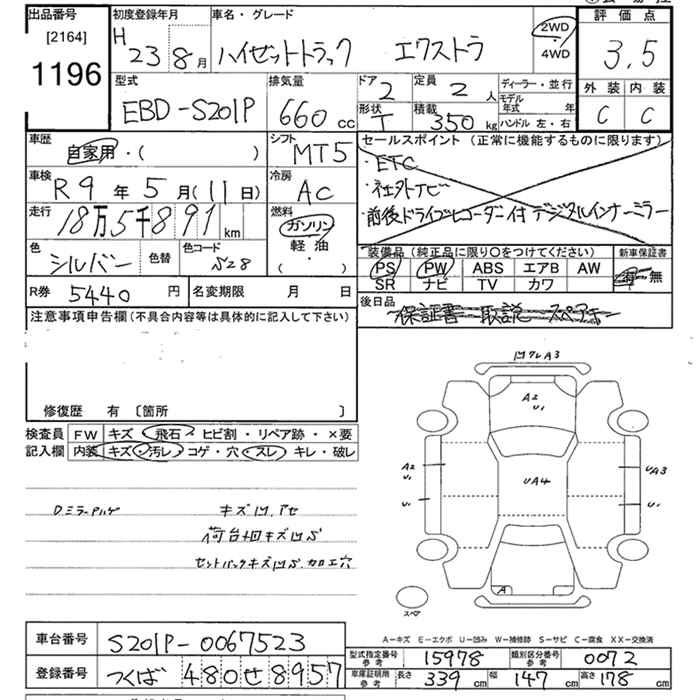 出品番号
[2164]
1196
初度登録年月
H 23年8月
車名・グレード
ハイゼットトラック エクストラ
2WD
・
4WD
評価点
3.5
外装 内装
C C
型式
EBD-S201P
排気量
660 cc
ドア
2
定員
2 人
形状
T
積載
350 kg
ディーラー・並行
モデル年式 年
ハンドル 左・右
車歴
自家用・( )
シフト
MT5
車検
R9年5月(11日)
冷房
AC
走行
18万5千891 km
燃料
ガソリン
軽油
( )
色
シルバー
色替
色コード
S28
セールスポイント (正常に機能するものに限ります)
ETC
・社外ナビ
・前後ドライブレコーダー付 デジタルインナーミラー
装備品(純正品に限り〇をつけてください)
PS PW ABS エアB AW
SR ナビ TV カワ
新車保証書
有・無
R券 5440 円
名変期限 月 日
後日品
保証書 取説 スペアキー
注意事項申告欄(不具合内容等は具体的に記入して下さい)
修復歴 有 〔箇所 〕
検査員
記入欄
FW キズ・飛石・ヒビ割・リペア跡・×要
内装 キズ・汚レ・コゲ・穴・スレ・キレ・破レ
D.ミラーアルゲ
キズ凹.アセ
荷台回キズ凹S
セットバックキズ凹S.加工穴
凹ワレA3
A2
U1
A2
U1
UA4
UA3
U1
U1
A
スペア
A-キズ E-エクボ U-凹み W-補修跡 S-サビ C-腐食 XX-交換済
車台番号
S201P-0067523
登録番号
つくば 480せ8957
型式指定番号
参考
15978
類別区分番号
参考
0072
車庫証明用
参考
長さ 339 cm 幅 147 cm 高さ 178 cm